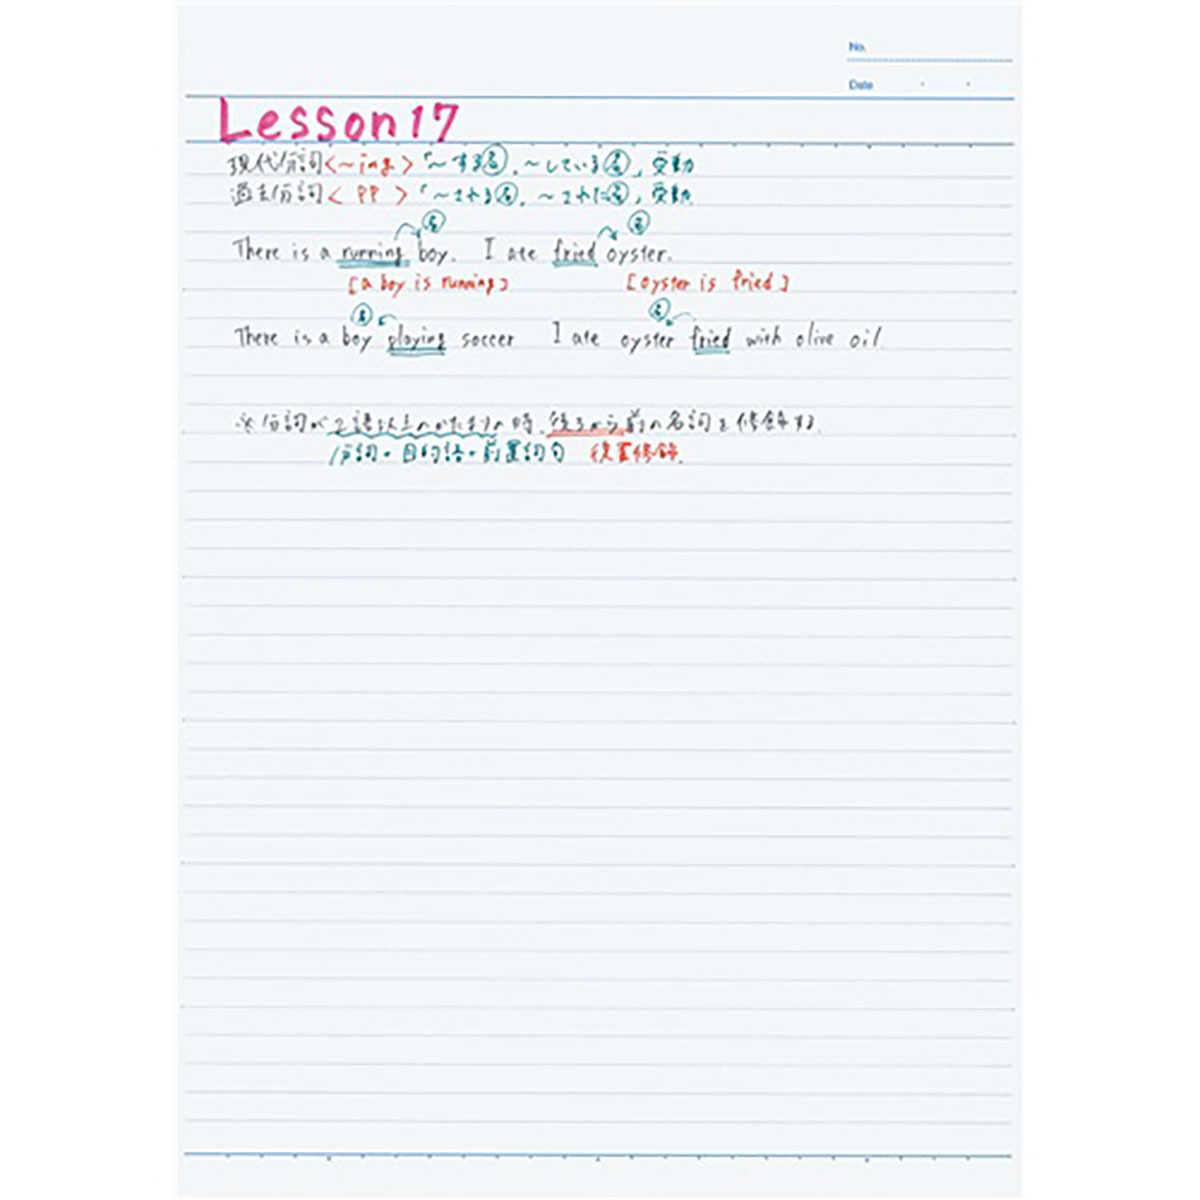 No.
Date
Lesson17
現代分詞<~ing>「~する名、~している名」受動
過去分詞< PP >「~される名、~された名」受動
名 名
There is a running boy. I ate fried oyster.
[a boy is running] [oyster is fried]
名 名
There is a boy playing soccer I ate oyster fried with olive oil.
※分詞が2語以上のかたまりの時、後ろから前の名詞を修飾する.
分詞+目的語+前置詞句 後置修飾.